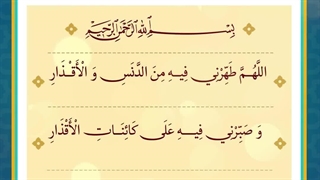 بِسْمِ اللهِ الرَّحْمَنِ الرَّحِيْمِ
اللَّهُمَّ طَهِّرْنِي فِيهِ مِنَ الدَّنَسِ وَ الْأَقْذَارِ
وَ صَبِّرْنِي فِيهِ عَلَى كَائِنَاتِ الْأَقْدَارِ